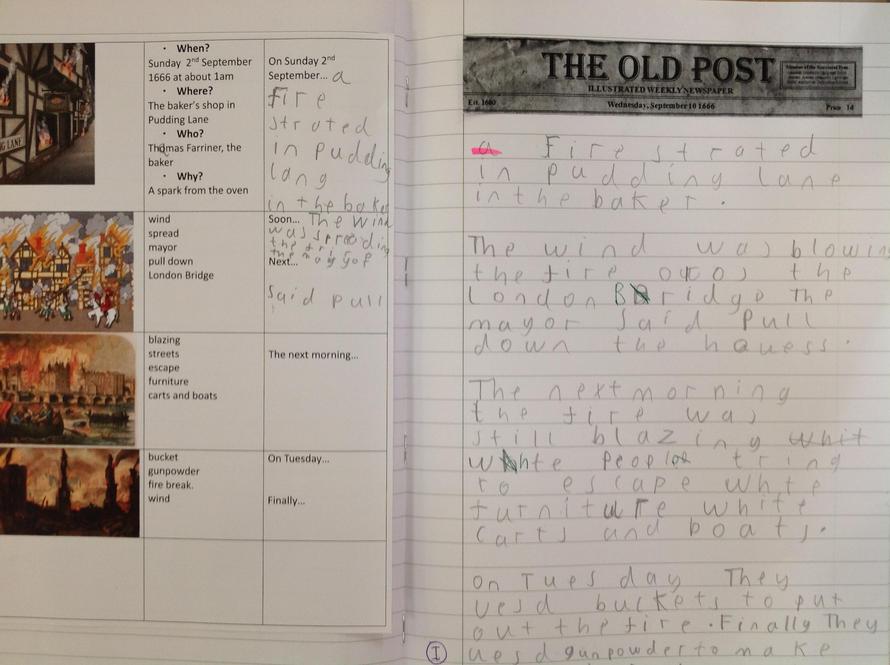 • When?
Sunday 2nd September
1666 at about 1am
• Where?
The baker's shop in
Pudding Lane
• Who?
Thomas Farriner, the
baker
• Why?
A spark from the oven
On Sunday 2nd
September... a
fire
strated
in pudding
lang
in the baker
wind
spread
mayor
pull down
London Bridge
Soon... The wind
was spreoding
the
the
Next...
Said pull
blazing
streets
escape
furniture
carts and boats
The next morning...
bucket
gunpowder
fire break.
wind
On Tuesday...
Finally...
G LANE
THE OLD POST
ILLUSTRATED WEEKLY NEWSPAPER
Est. 1680
Wednesday, September 10 1666
Price 1d
a Fire strated
in pudding lane
in the baker.
The wind was blowing
the fire the
London Bridge The
mayor said Pull
down the hauess.
The next morning
the fire was
still blazing whit
whte People tring
to escape whte
furniture white
carts and boats.
On Tuesday They
uesd buckets to put
out the fire. Finally They
uesd gunpowder to make
I